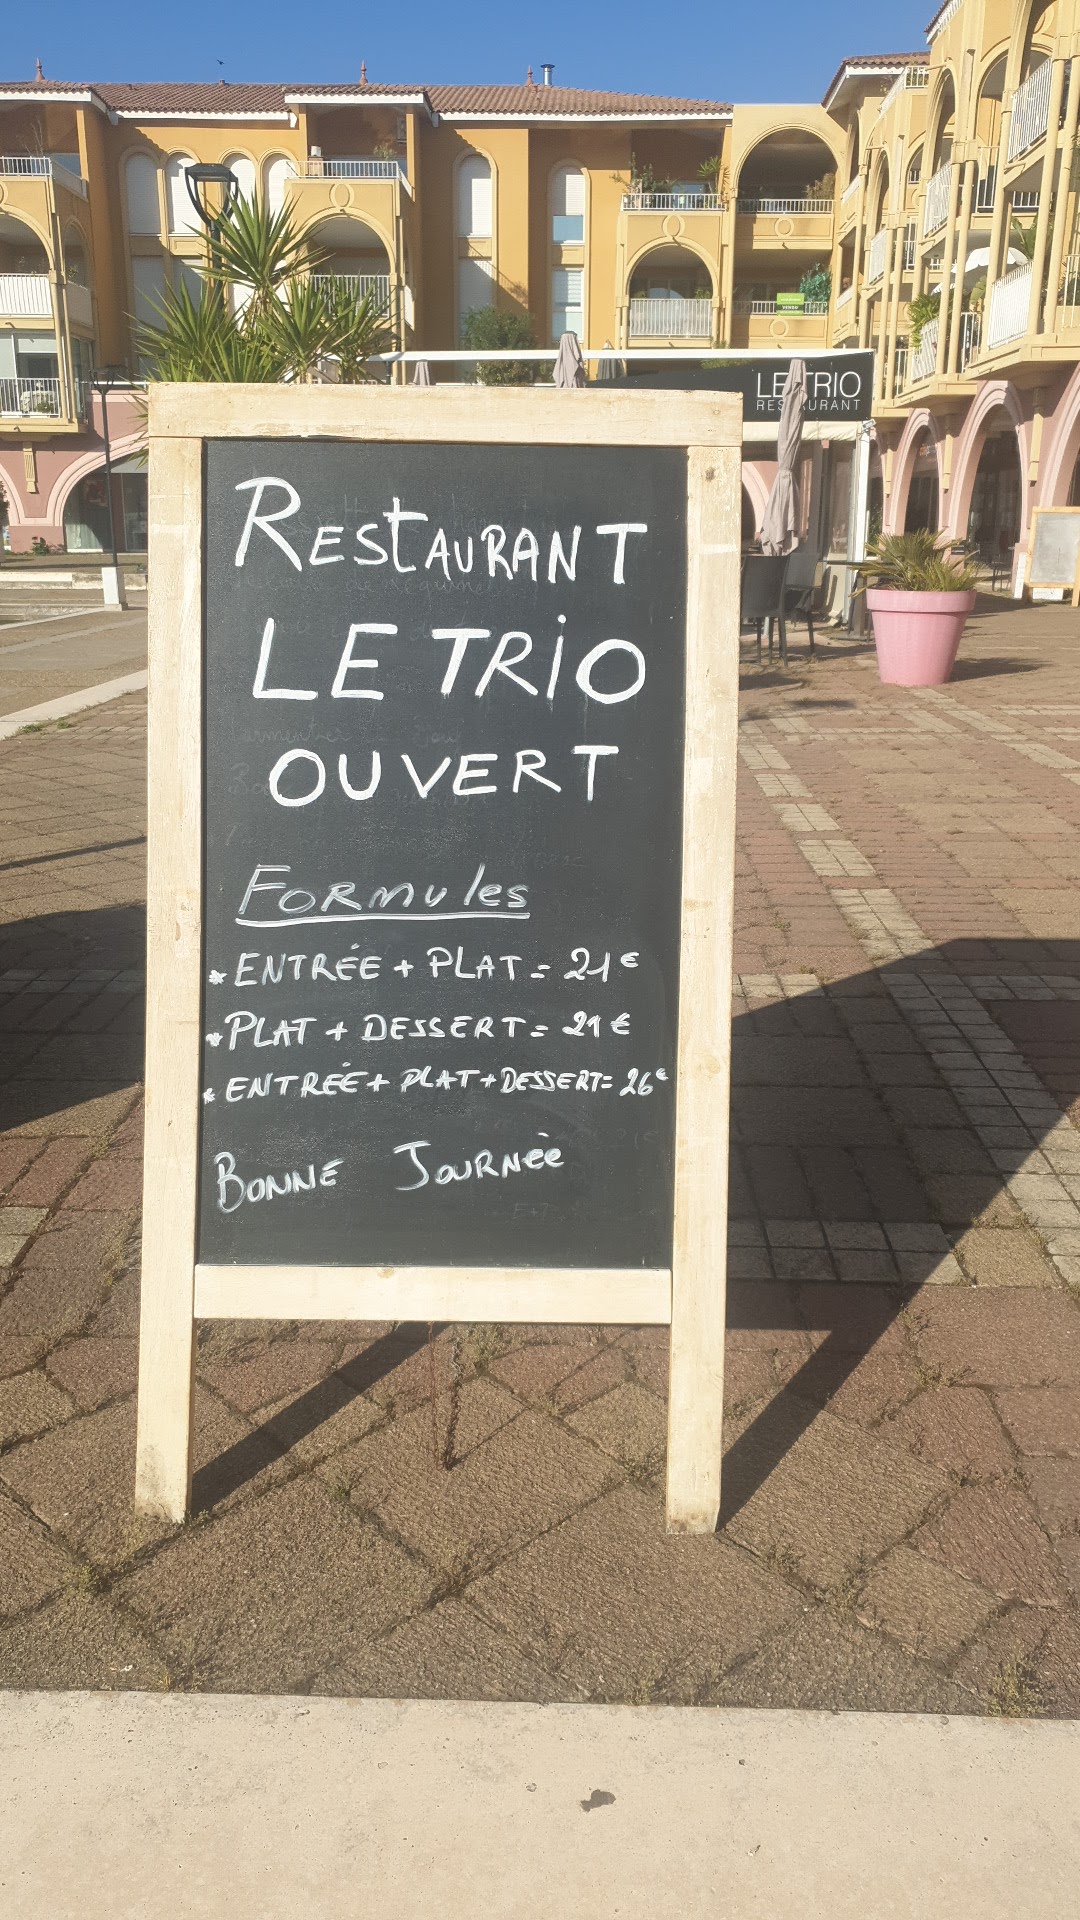 LE TRIO
RESTAURANT
RESTAURANT
LE TRIO
OUVERT
FORMULES
* ENTRÉE + PLAT = 21€
* PLAT + DESSERT = 21€
* ENTRÉE + PLAT + DESSERT = 26€
BONNE JOURNÉE